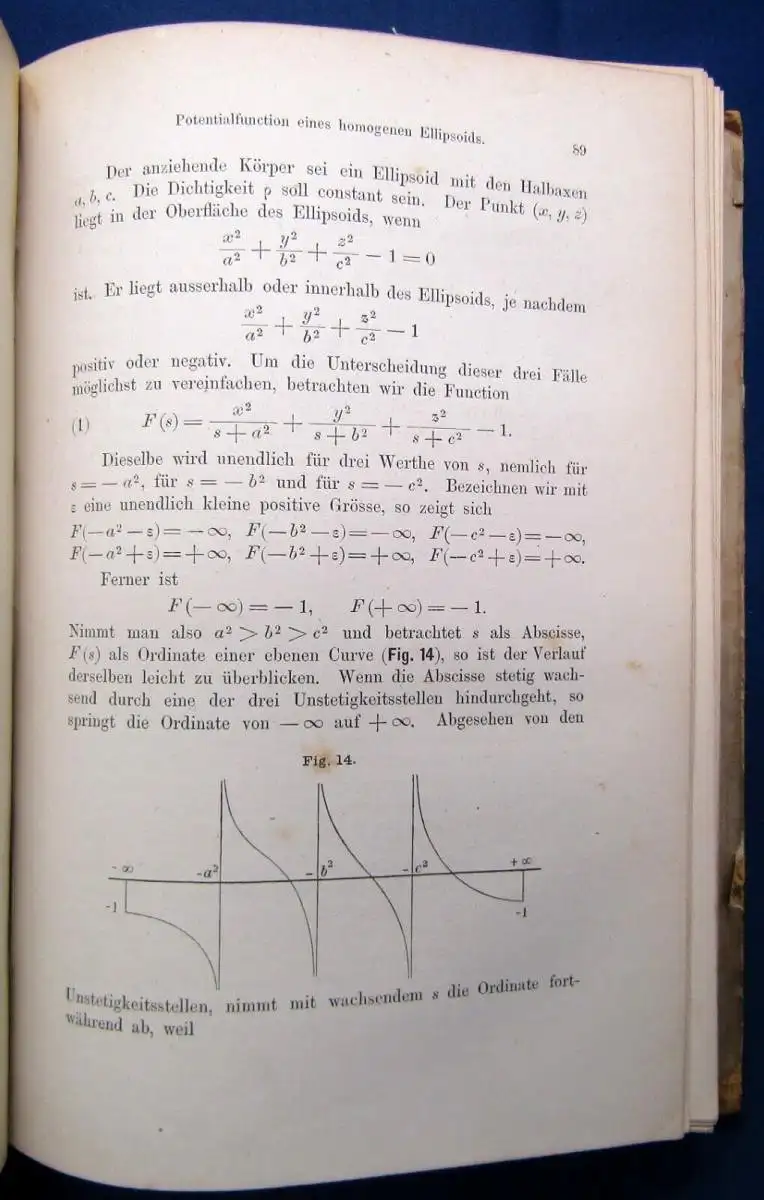 Potentialfunction eines homogenen Ellipsoids.
89
Der anziehende Körper sei ein Ellipsoid mit den Halbaxen
a, b, c. Die Dichtigkeit ρ soll constant sein. Der Punkt (x, y, z)
liegt in der Oberfläche des Ellipsoids, wenn
x²/a² + y²/b² + z²/c² − 1 = 0
ist. Er liegt ausserhalb oder innerhalb des Ellipsoids, je nachdem
x²/a² + y²/b² + z²/c² − 1
positiv oder negativ. Um die Unterscheidung dieser drei Fälle
möglichst zu vereinfachen, betrachten wir die Function
(1) F(s) = x²/(s + a²) + y²/(s + b²) + z²/(s + c²) − 1.
Dieselbe wird unendlich für drei Werthe von s, nemlich für
s = — a², für s = — b² und für s = — c². Bezeichnen wir mit
ε eine unendlich kleine positive Grösse, so zeigt sich
F(—a² — ε) = — ∞, F(—b² — ε) = — ∞, F(—c² — ε) = — ∞,
F(—a² + ε) = + ∞, F(—b² + ε) = + ∞, F(—c² + ε) = + ∞.
Ferner ist
F(— ∞) = — 1, F(+ ∞) = — 1.
Nimmt man also a² > b² > c² und betrachtet s als Abscisse,
F(s) als Ordinate einer ebenen Curve (Fig. 14), so ist der Verlauf
derselben leicht zu überblicken. Wenn die Abscisse stetig wach-
send durch eine der drei Unstetigkeitsstellen hindurchgeht, so
springt die Ordinate von — ∞ auf + ∞. Abgesehen von den
Fig. 14.
- ∞ -a² - b² - c² + ∞
-1 -1
Unstetigkeitsstellen, nimmt mit wachsendem s die Ordinate fort-
während ab, weil